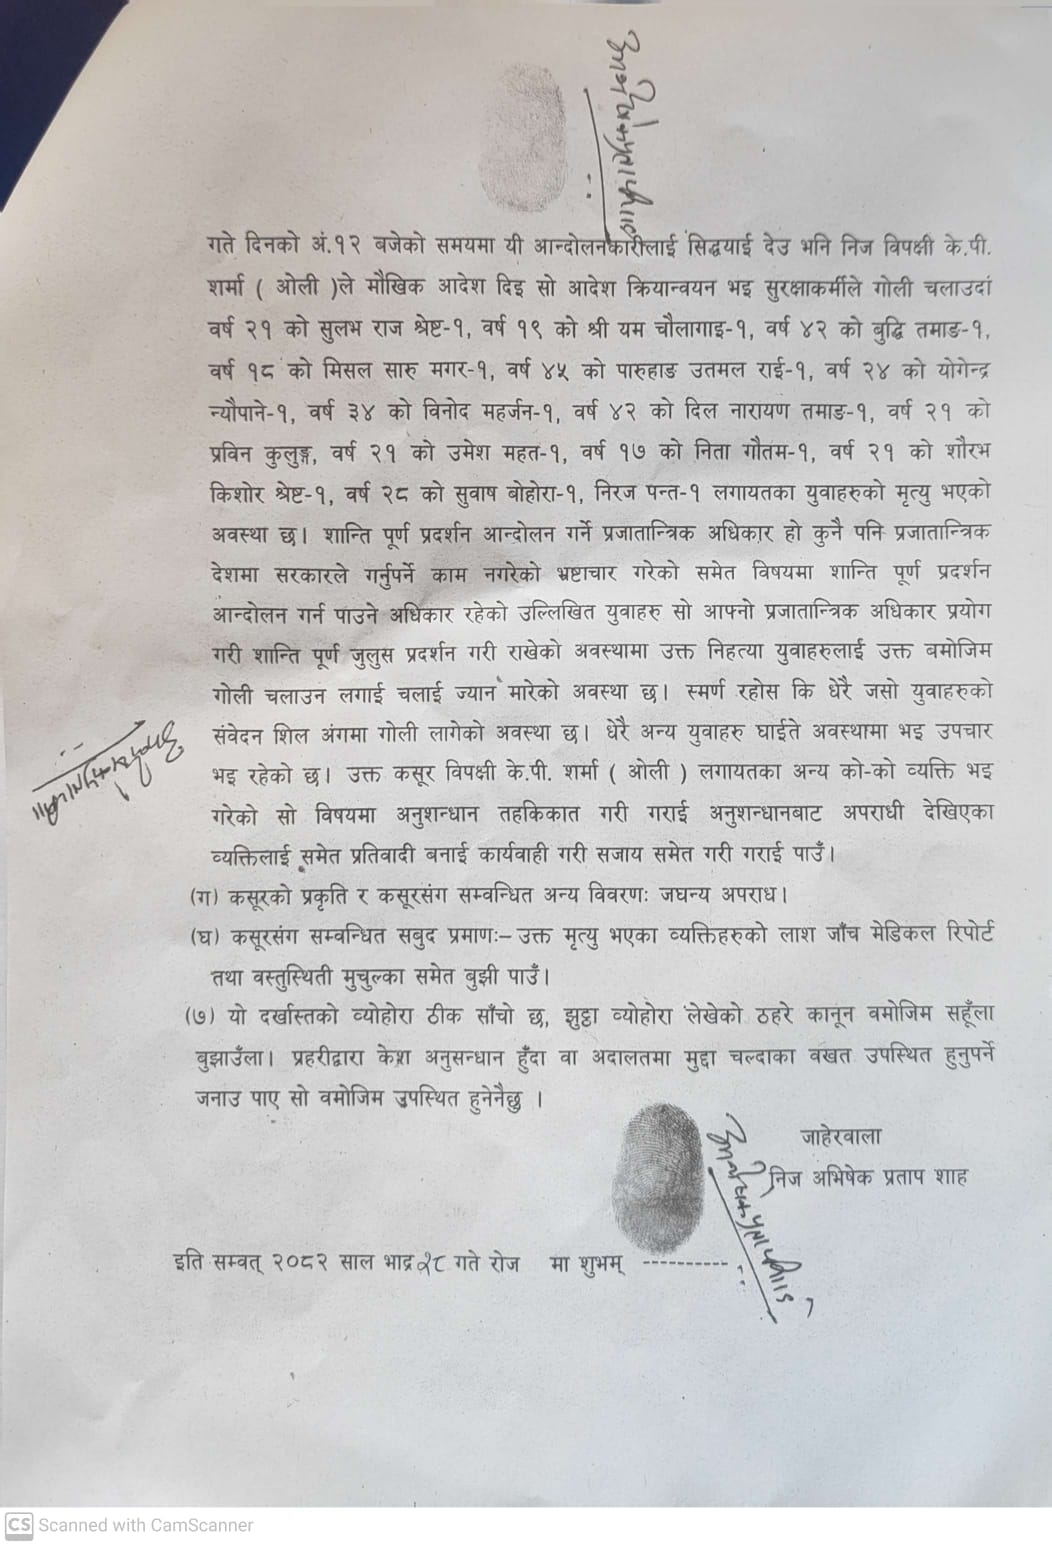 गते दिनको अं.१२ बजेको समयमा यी आन्दोलनकारीलाई सिद्धयाई देउ भनि निज विपक्षी के.पी.
शर्मा ( ओली )ले मौखिक आदेश दिइ सो आदेश क्रियान्वयन भइ सुरक्षाकर्मीले गोली चलाउदां
वर्ष २१ को सुलभ राज श्रेष्ट-१, वर्ष १९ को श्री यम चौलागाइ-१, वर्ष ४२ को बुद्धि तमाङ-१,
वर्ष १८ को मिसल सारु मगर-१, वर्ष ४५ को पारुहाङ उतमल राई-१, वर्ष २४ को योगेन्द्र
न्यौपाने-१, वर्ष ३४ को विनोद महर्जन-१, वर्ष ४२ को दिल नारायण तमाङ-१, वर्ष २१ को
प्रविन कुलुङ्ग, वर्ष २१ को उमेश महत-१, वर्ष १७ को निता गौतम-१, वर्ष २१ को शौरभ
किशोर श्रेष्ट-१, वर्ष २८ को सुवाष बोहोरा-१, निरज पन्त-१ लगायतका युवाहरुको मृत्यु भएको
अवस्था छ। शान्ति पूर्ण प्रदर्शन आन्दोलन गर्ने प्रजातान्त्रिक अधिकार हो कुनै पनि प्रजातान्त्रिक
देशमा सरकारले गर्नुपर्ने काम नगरेको भ्रष्टाचार गरेको समेत विषयमा शान्ति पूर्ण प्रदर्शन
आन्दोलन गर्न पाउने अधिकार रहेको उल्लिखित युवाहरु सो आफ्नो प्रजातान्त्रिक अधिकार प्रयोग
गरी शान्ति पूर्ण जुलुस प्रदर्शन गरी राखेको अवस्थामा उक्त निहत्या युवाहरुलाई उक्त बमोजिम
गोली चलाउन लगाई चलाई ज्यान मारेको अवस्था छ। स्मर्ण रहोस कि धेरै जसो युवाहरुको
संवेदन शिल अंगमा गोली लागेको अवस्था छ। धेरै अन्य युवाहरु घाईते अवस्थामा भइ उपचार
भइ रहेको छ। उक्त कसूर विपक्षी के.पी. शर्मा ( ओली ) लगायतका अन्य को-को व्यक्ति भइ
गरेको सो विषयमा अनुशन्धान तहकिकात गरी गराई अनुशन्धानबाट अपराधी देखिएका
व्यक्तिलाई समेत प्रतिवादी बनाई कार्यवाही गरी सजाय समेत गरी गराई पाउँ।
(ग) कसूरको प्रकृति र कसूरसंग सम्वन्धित अन्य विवरणः जघन्य अपराध।
(घ) कसूरसंग सम्वन्धित सबुद प्रमाणः– उक्त मृत्यु भएका व्यक्तिहरुको लाश जाँच मेडिकल रिपोर्ट
तथा वस्तुस्थिती मुचुल्का समेत बुझी पाउँ।
(७) यो दर्खास्तको व्योहोरा ठीक साँचो छ, झुट्ठा व्योहोरा लेखेको ठहरे कानून वमोजिम सहूँला
बुझाउँला। प्रहरीद्वारा केश अनुसन्धान हुँदा वा अदालतमा मुद्दा चल्दाका वखत उपस्थित हुनुपर्ने
जनाउ पाए सो वमोजिम उपस्थित हुनेनैछु ।
जाहेरवाला
निज अभिषेक प्रताप शाह
इति सम्वत् २०८२ साल भाद्र २८ गते रोज मा शुभम् ----------
CS Scanned with CamScanner